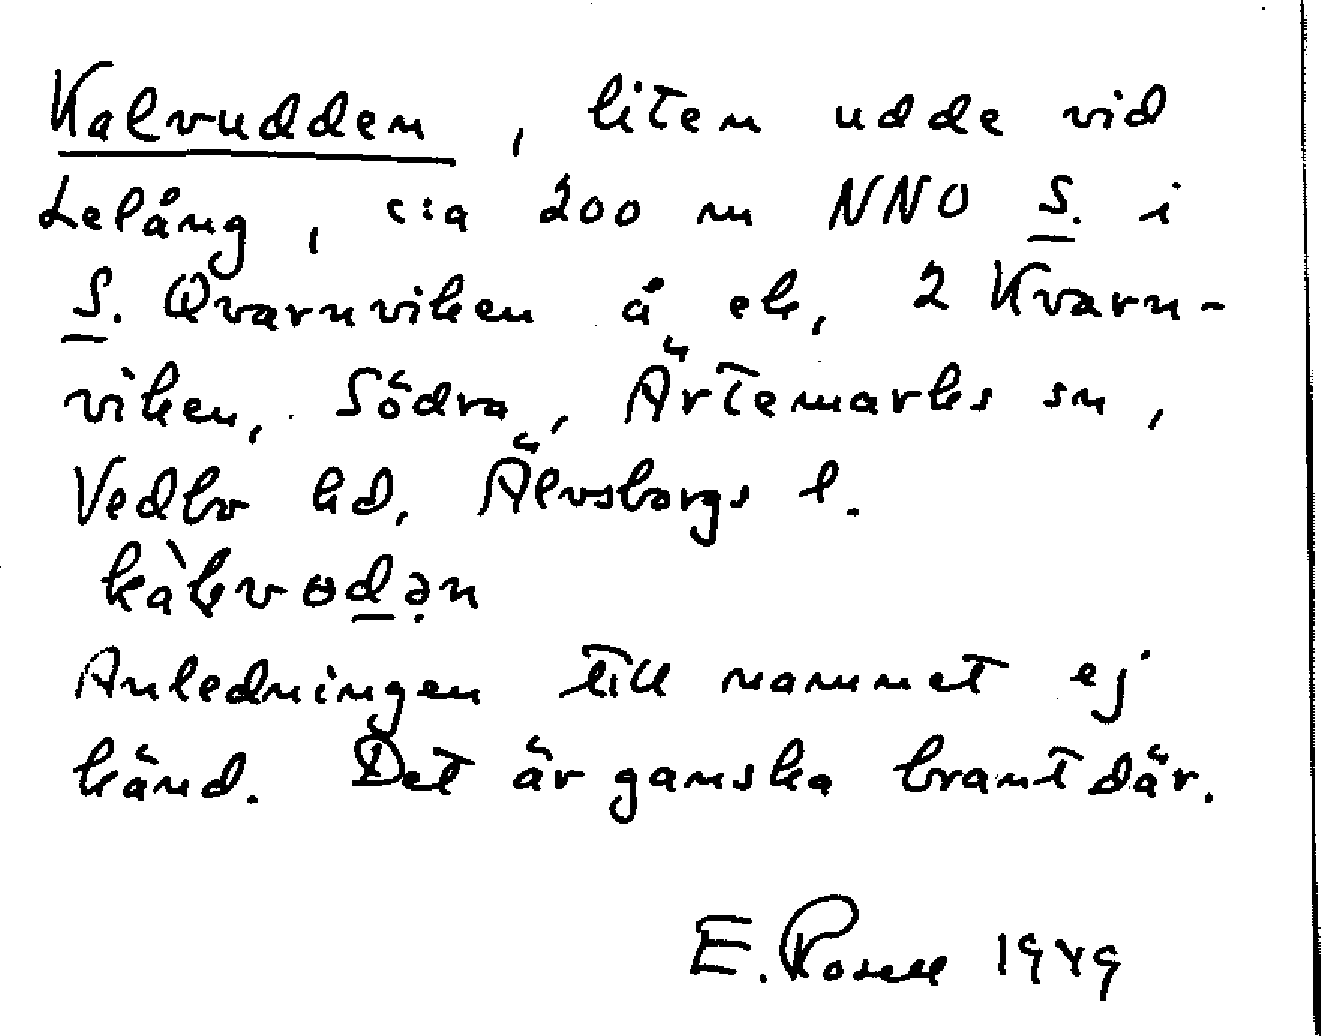 Kalvudden, liten udde vid
Lelång, c:a 200 m NNO S. i
S. Qvarnviken å ek, 2 Kvarn-
viken, Södra, Ärtemarks sn,
Vedbo hd, Älvsborgs l.
kàɫvɵdən
Anledningen till namnet ej
känd. Det är ganska brant där.
E. Rosell 1949